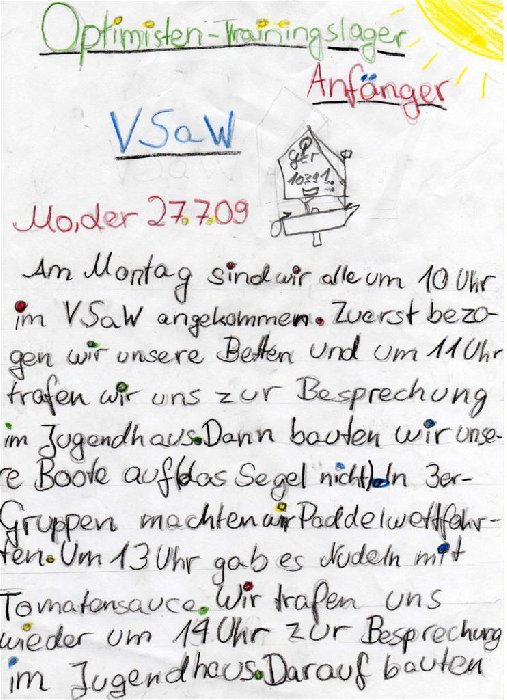 Optimisten-Trainingslager
Anfänger
VSaW
ger
10391
Mo, der 27.7.09
Am Montag sind wir alle um 10 Uhr
im VSaW angekommen. Zuerst bezo-
gen wir unsere Betten und um 11 Uhr
trafen wir uns zur Besprechung
im Jugendhaus. Dann bauten wir unse-
re Boote auf (das Segel nicht). In 3er-
Gruppen machten wir Paddelwettfahr-
ten. Um 13 Uhr gab es Nudeln mit
Tomatensauce. Wir trafen uns
wieder um 14 Uhr zur Besprechung
im Jugendhaus. Darauf bauten